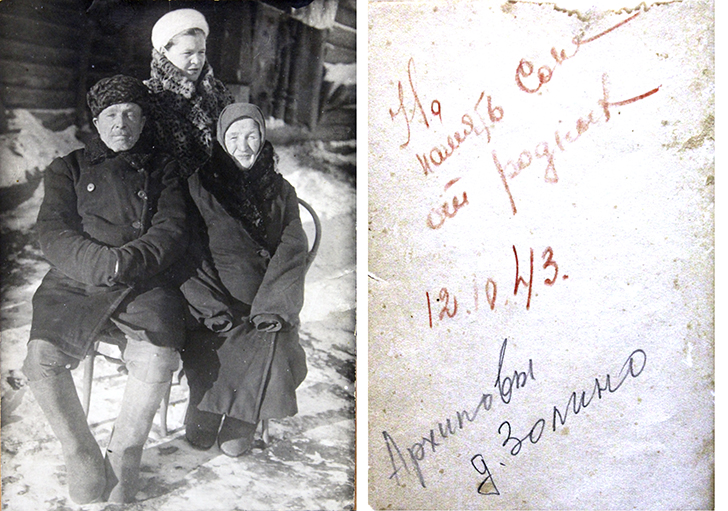 На
память Соне
от родных.
12.10.43.
Архиповы
д. Золино